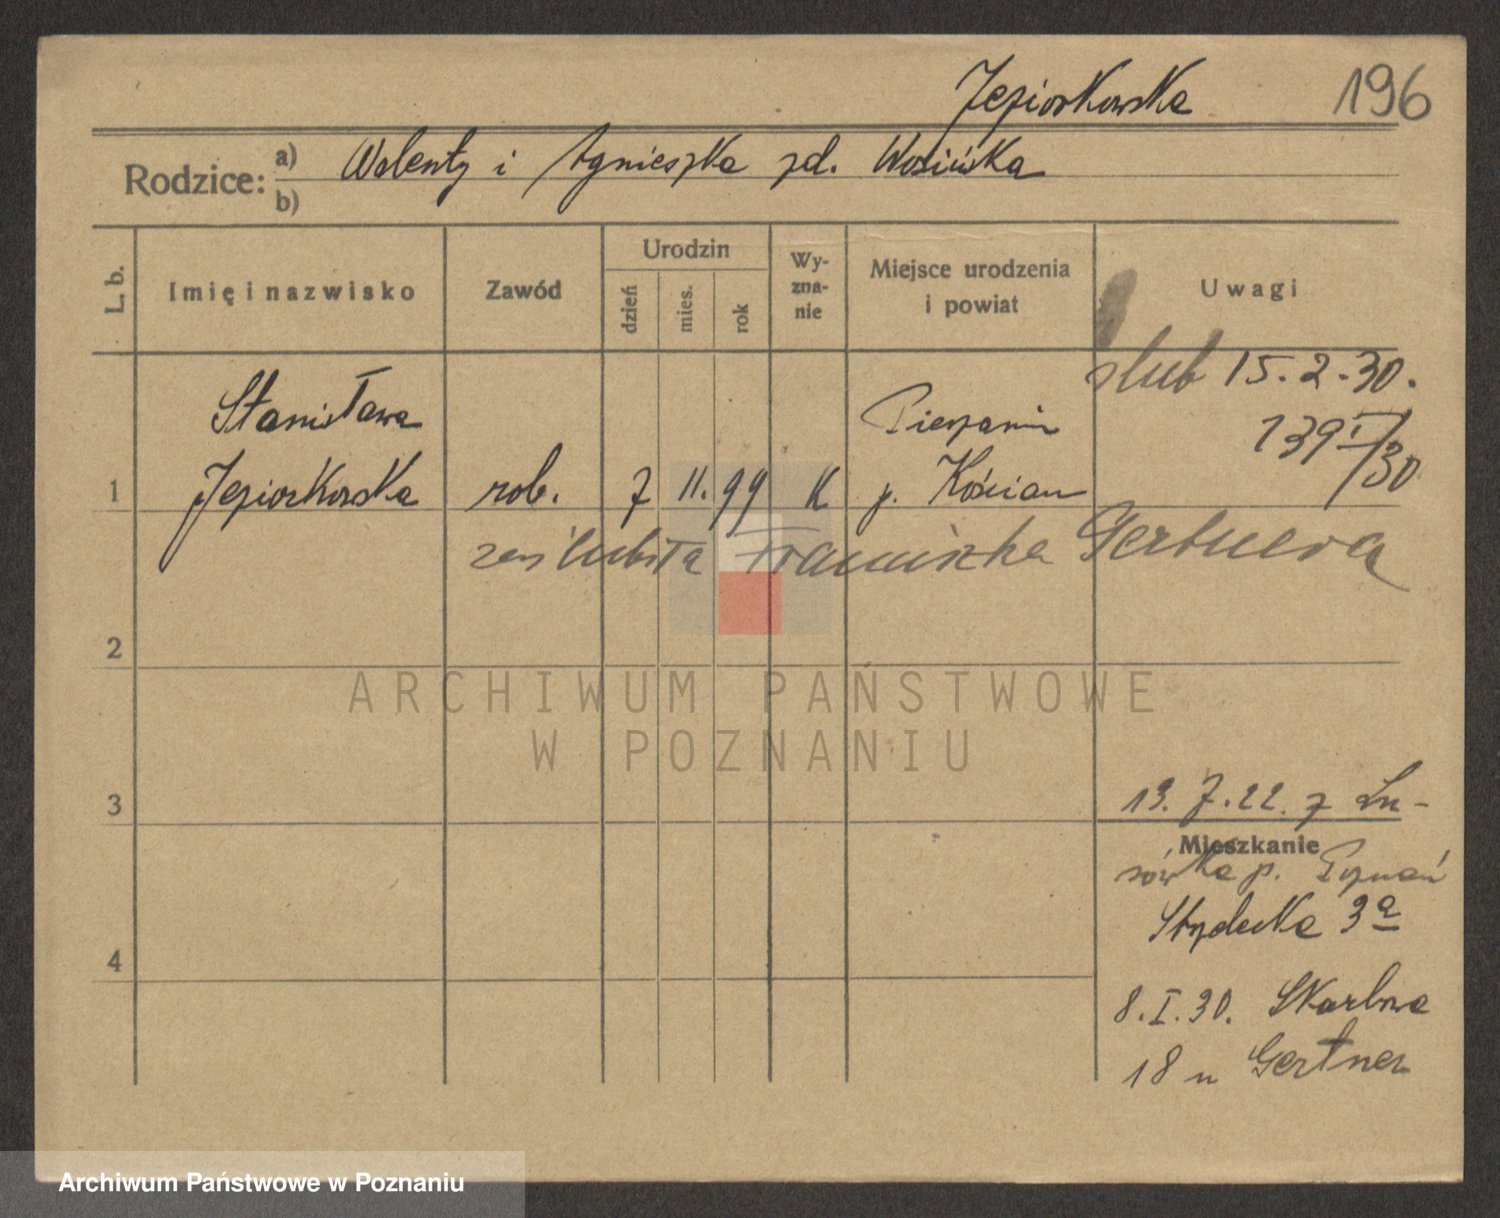 Jeziorkowska 196
Rodzice: a) Walenty i Agnieszka zd. Wosińska
b)
L. b. Imię i nazwisko Zawód Urodzin dzień mies. rok Wy-zna-nie Miejsce urodzenia i powiat Uwagi
ślub 15.2.30.
139 I/30
Stanisława Pierzanin
1 Jeziorkowska rob. 7 11. 99 K p. Kościan
zaślubiła Franciszka Gertnera
2
ARCHIWUM PAŃSTWOWE
W POZNANIU
3 13.7.22. z Lu-
Mieszkanie
sówka p. Poznań
Strzelecka 3a
4
8.I.30. Skarbowa
18 u Gertner
Archiwum Państwowe w Poznaniu